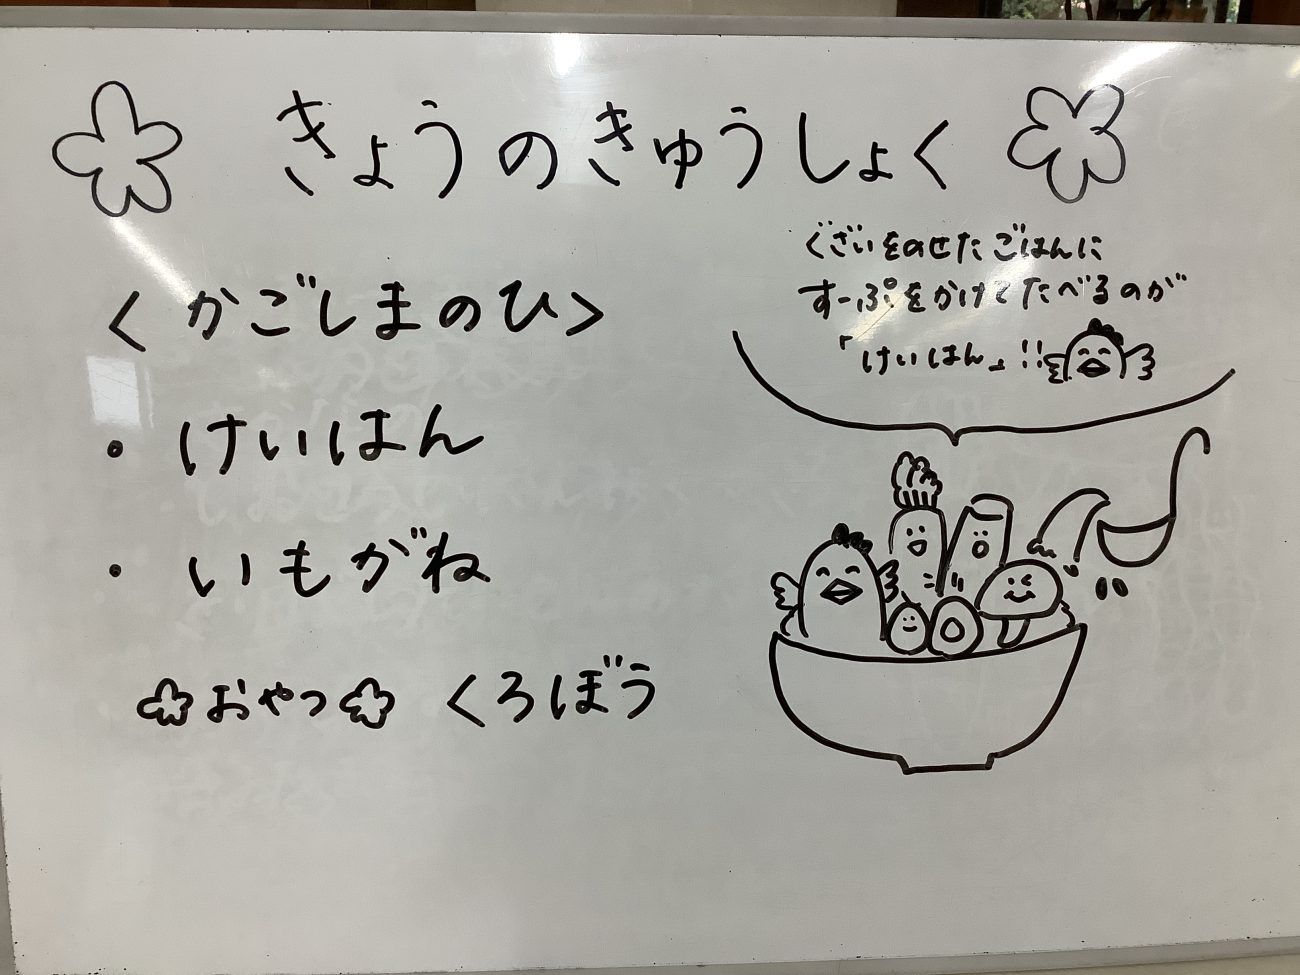 きょうのきゅうしょく
<かごしまのひ>
・けいはん
・いもがね
おやつ くろぼう
ぐざいをのせたごはんに
すーぷをかけてたべるのが
「けいはん」!!